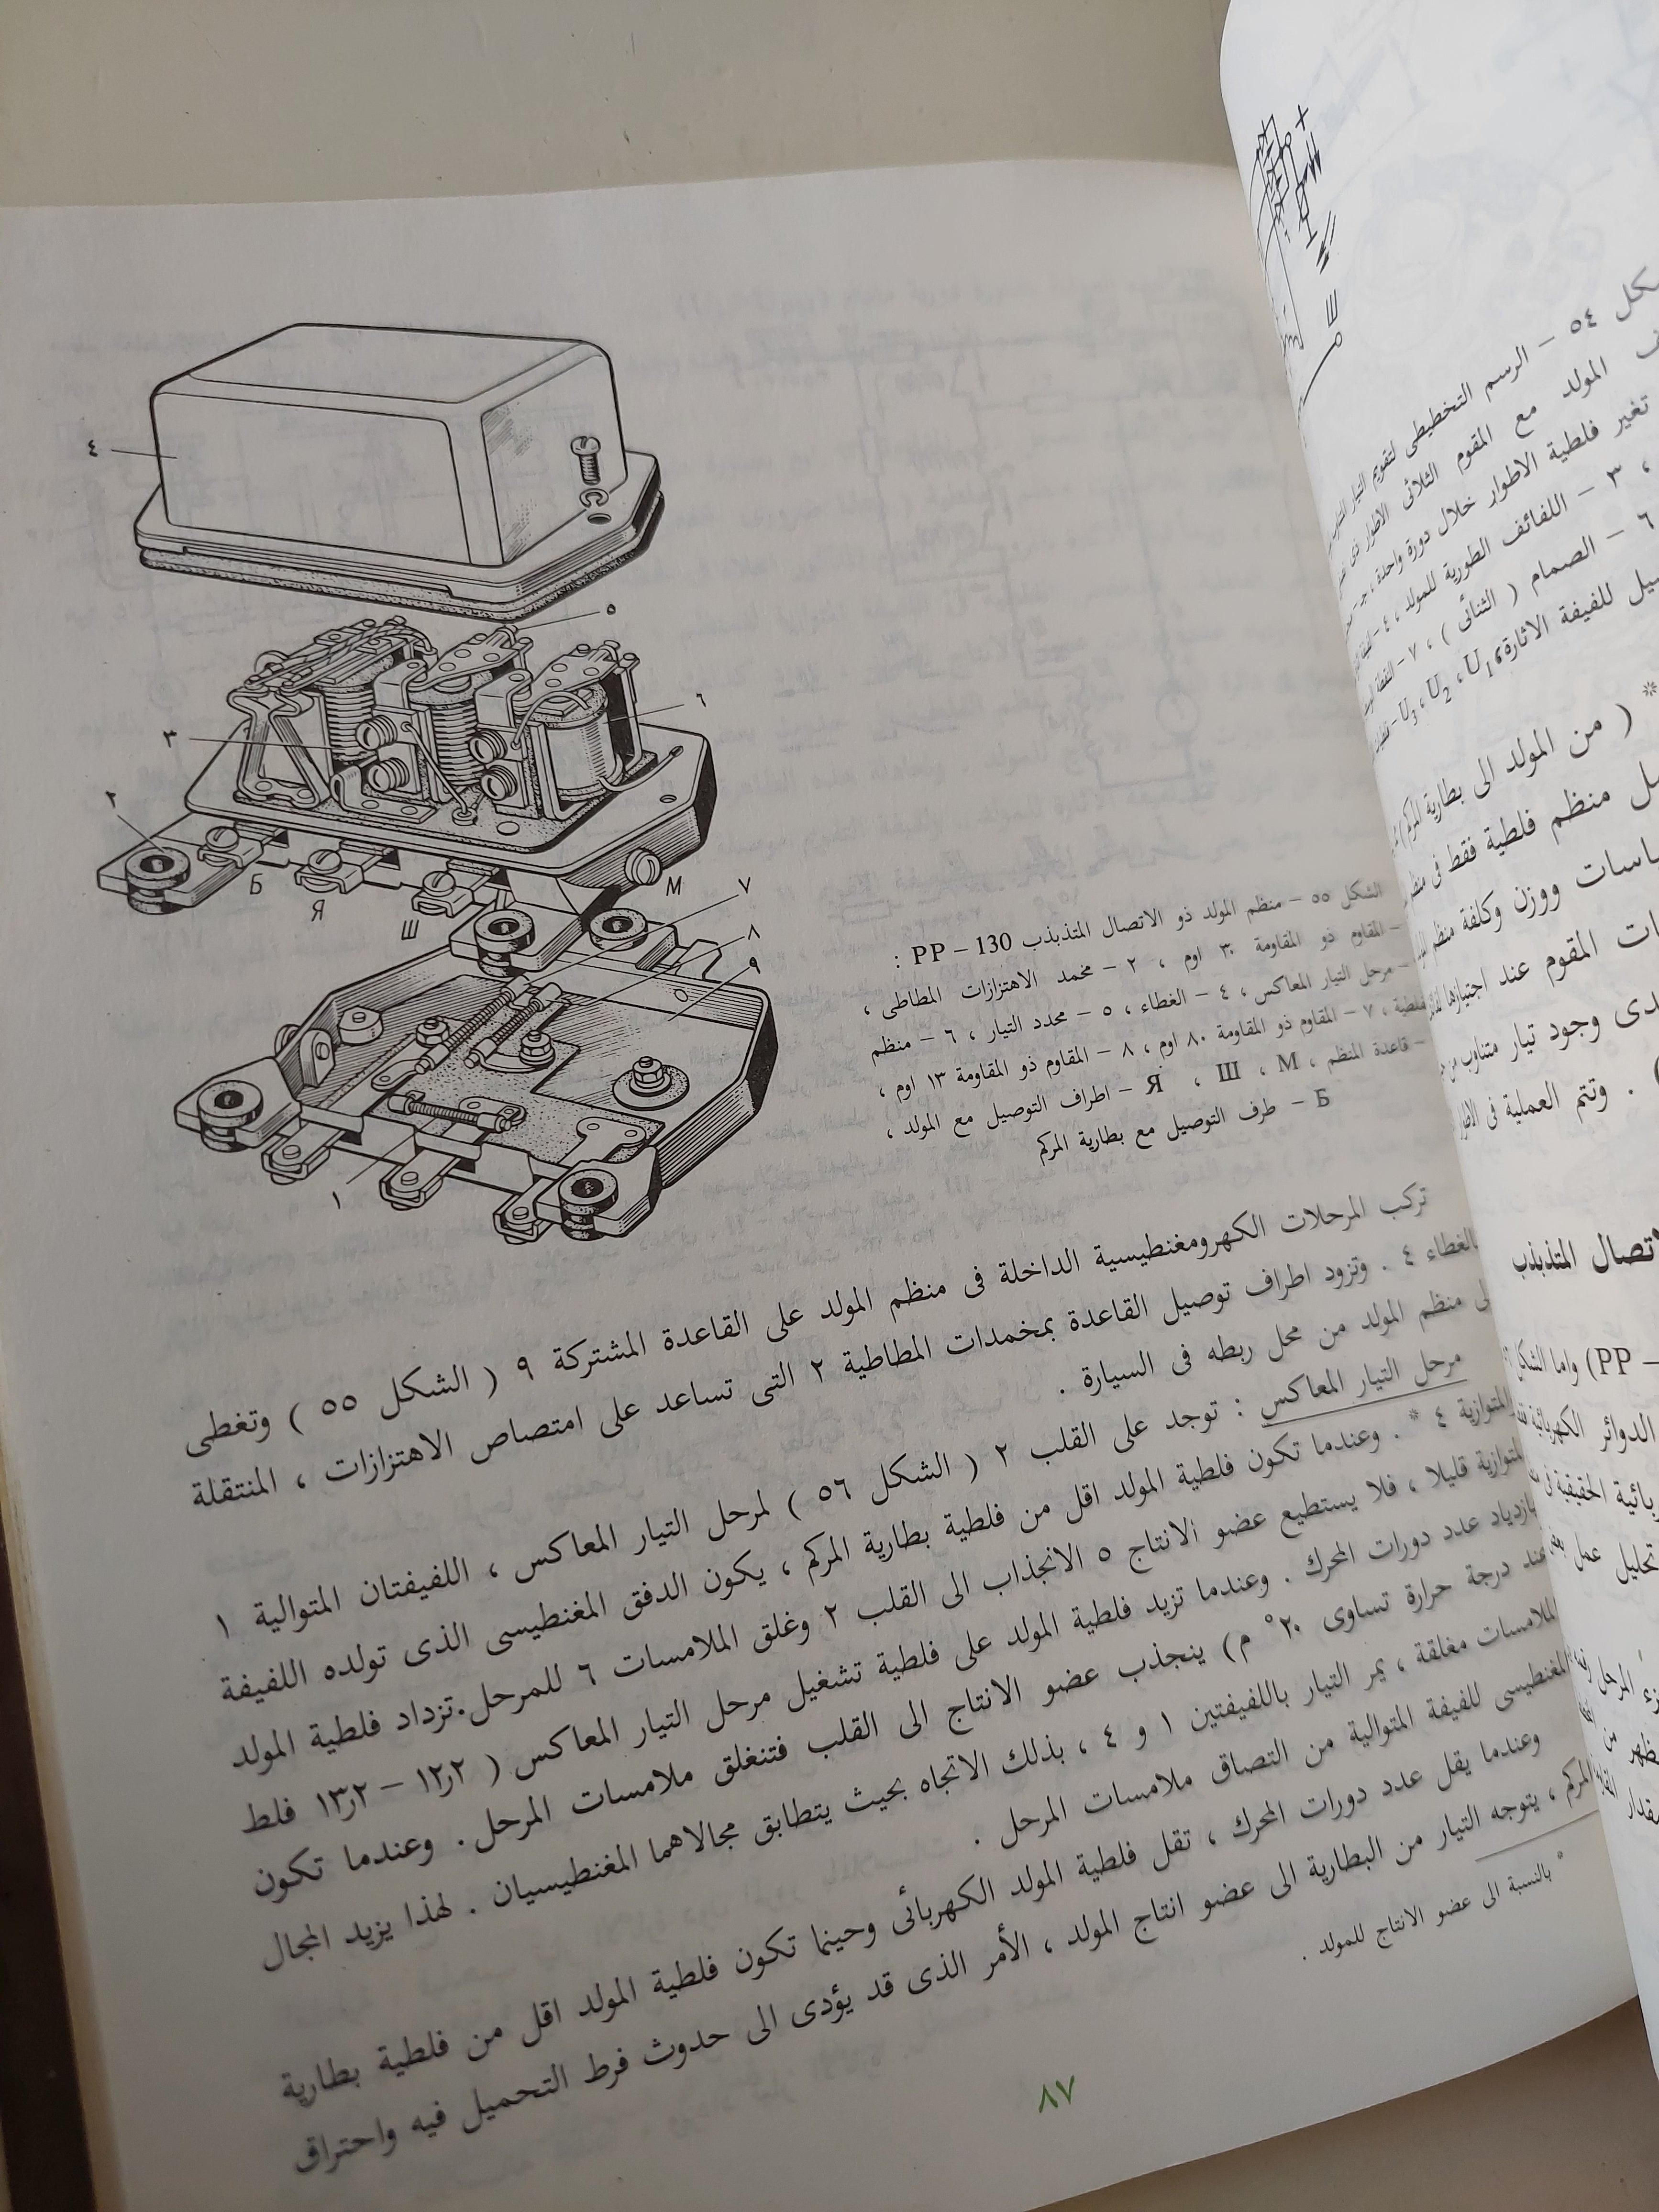 ٤
٥
٦
٣
٢
Б
Я
Ш
М
٧
٨
٩
١
الشكل ٥٥ – منظم المولد ذو الاتصال المتذبذب PP – 130 :
– المقاوم ذو المقاومة ٣٠ اوم ، ٢ – مخمد الاهتزازات المطاطى ،
– مرحل التيار المعاكس ، ٤ – الغطاء ، ٥ – محدد التيار ، ٦ – منظم
، ٧ – المقاوم ذو المقاومة ٨٠ اوم ، ٨ – المقاوم ذو المقاومة ١٣ اوم ،
– قاعدة المنظم ، М ، Ш ، Я – اطراف التوصيل مع المولد ،
Б – طرف التوصيل مع بطارية المركم
تركب المرحلات الكهرومغنطيسية الداخلة فى منظم المولد على القاعدة المشتركة ٩ ( الشكل ٥٥ ) وتغطى
بالغطاء ٤ . وتزود اطراف توصيل القاعدة بمخمدات المطاطية ٢ التى تساعد على امتصاص الاهتزازات ، المنتقلة
منظم المولد من محل ربطه فى السيارة .
مرحل التيار المعاكس : توجد على القلب ٢ ( الشكل ٥٦ ) لمرحل التيار المعاكس ، اللفيفتان المتوالية ١
المتوازية ٤ * . وعندما تكون فلطية المولد اقل من فلطية بطارية المركم ، يكون الدفق المغنطيسى الذى تولده اللفيفة
المتوازية قليلا ، فلا يستطيع عضو الانتاج ٥ الانجذاب الى القلب ٢ وغلق الملامسات ٦ للمرحل. تزداد فلطية المولد
بازدياد عدد دورات المحرك . وعندما تزيد فلطية المولد على فلطية تشغيل مرحل التيار المعاكس ( ١٢٫٢ – ١٣٫٢ فلط
عند درجة حرارة تساوى ٢٠° م) ينجذب عضو الانتاج الى القلب فتنغلق ملامسات المرحل . وعندما تكون
الملامسات مغلقة ، يمر التيار باللفيفتين ١ و ٤ ، بذلك الاتجاه بحيث يتطابق مجالاهما المغنطيسيان . لهذا يزيد المجال
المغنطيسى للفيفة المتوالية من التصاق ملامسات المرحل .
وعندما يقل عدد دورات المحرك ، تقل فلطية المولد الكهربائى وحينما تكون فلطية المولد اقل من فلطية بطارية
المركم ، يتوجه التيار من البطارية الى عضو انتاج المولد ، الأمر الذى قد يؤدى الى حدوث فرط التحميل فيه واحتراق
* بالنسبة الى عضو الانتاج للمولد .
٨٧
٥٤ – الرسم التخطيطى لتقويم التيار
المولد مع المقوم الثلاثى الاطوار
تغير فلطية الاطوار خلال دورة واحدة ،
، ٣ – اللفائف الطورية للمولد ، ٤ –
٦ – الصمام ( الثنائى ) ، ٧ – النقطة
للفيفة الاثارة، U₁ ، U₂ ، U₃ –
* ( من المولد الى بطارية المركم
منظم فلطية فقط فى
ووزن وكلفة منظم
المقوم عند اجتيازها
وجود تيار متناوب
. وتتم العملية فى
الاتصال المتذبذب
PP –) واما الشكل
الدوائر الكهربائية
الحقيقية فى
تحليل عمل
المرحل
من